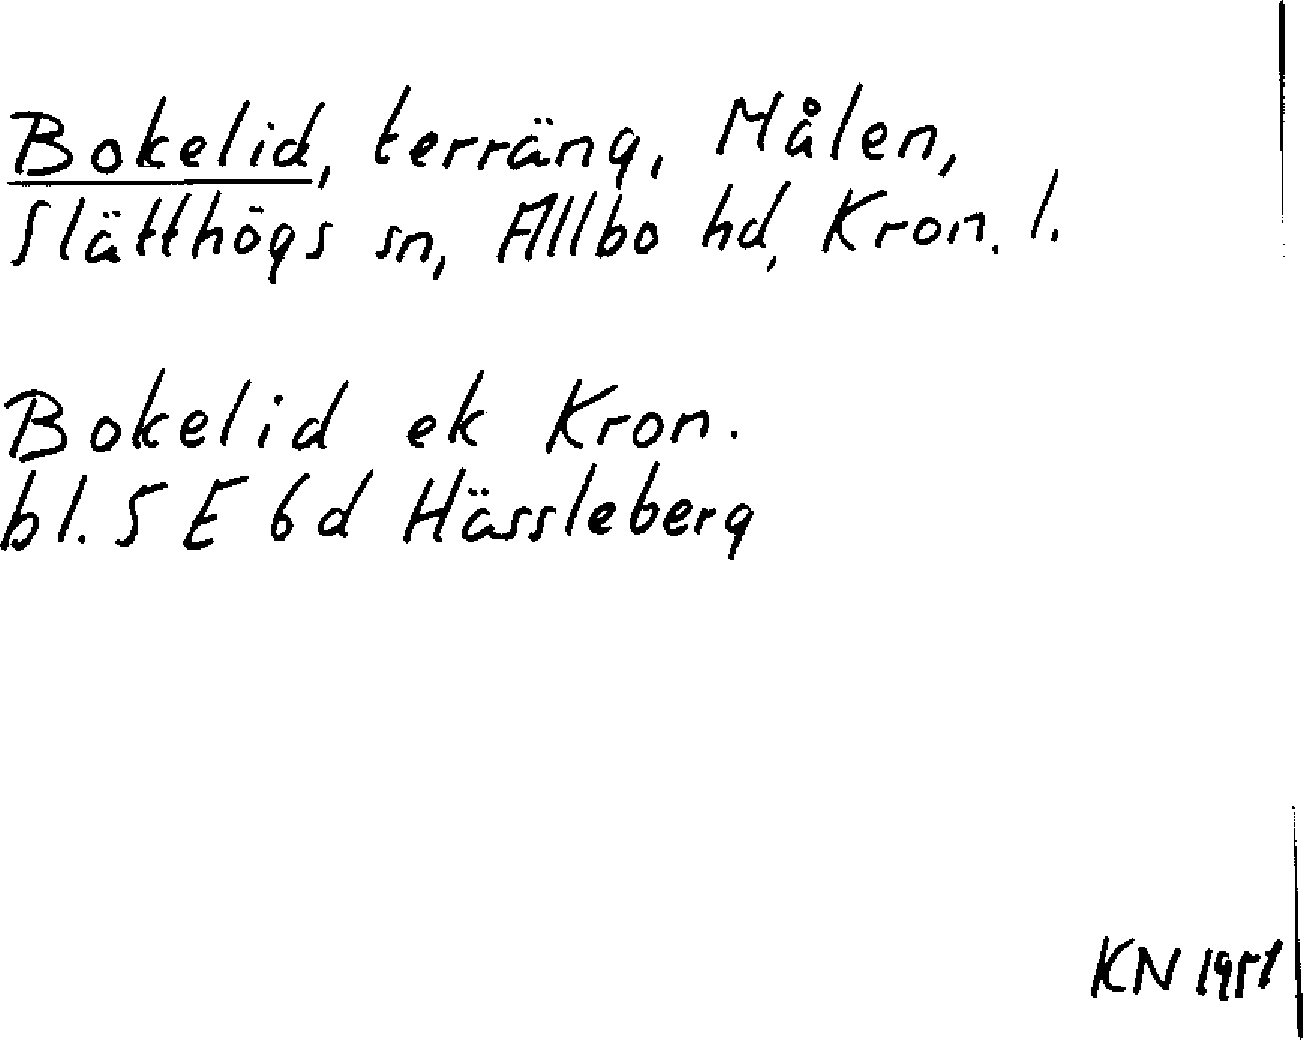 Bokelid, terräng, Målen,
Slätthögs sn, Allbo hd, Kron. l.
Bokelid ek Kron.
bl. 5 E 6d Hässleberg
KN 1951